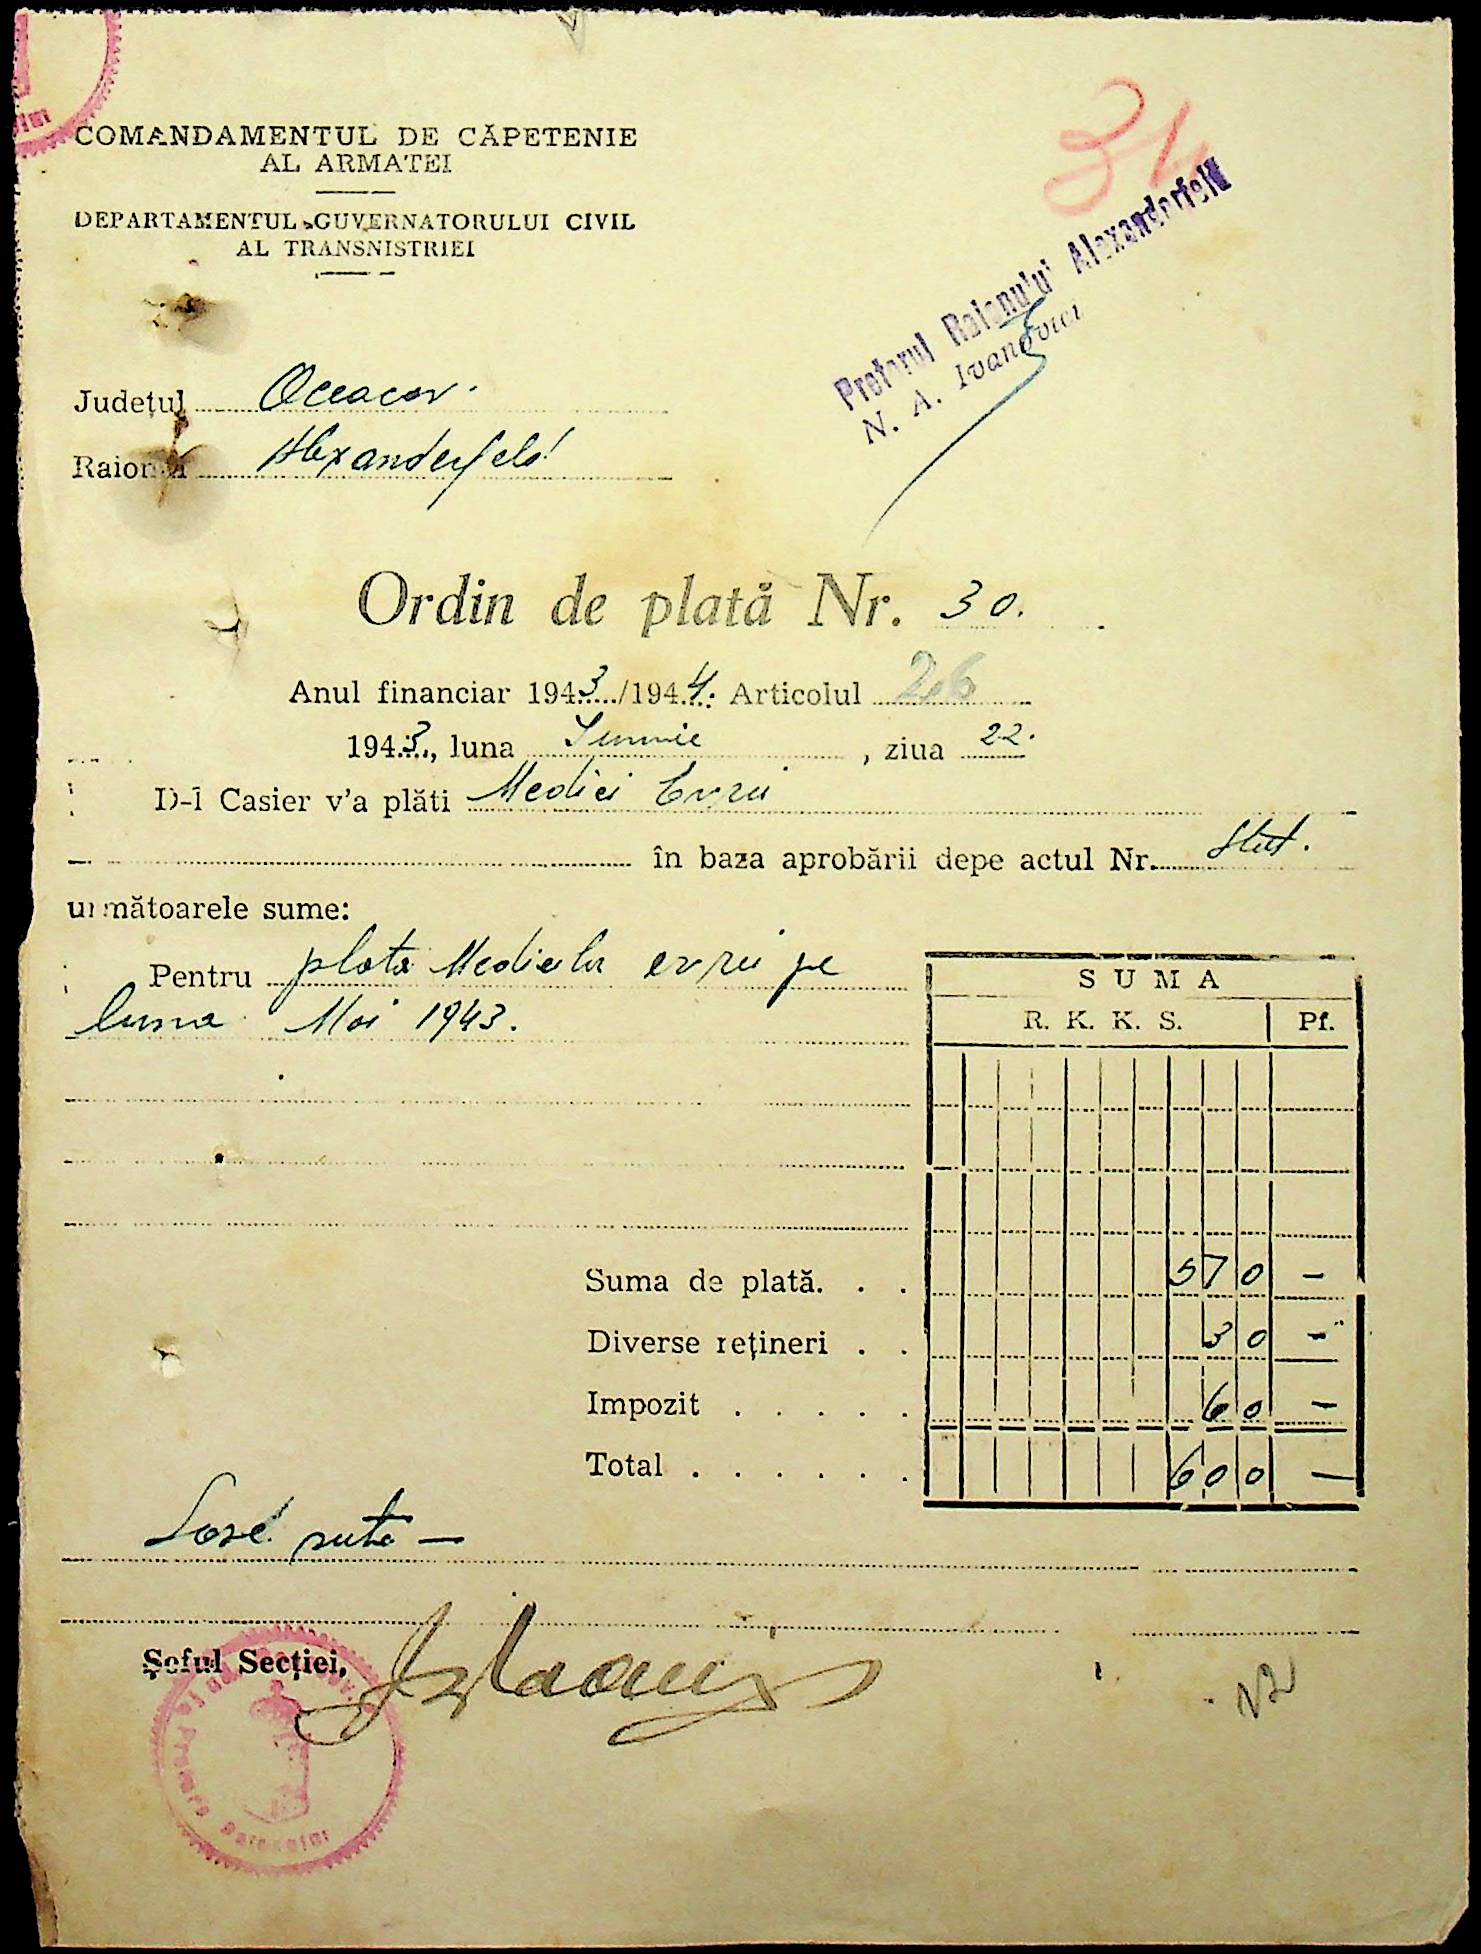 COMANDAMENTUL DE CĂPETENIE
AL ARMATEI
DEPARTAMENTUL GUVERNATORULUI CIVIL
AL TRANSNISTRIEI
31
Pretorul Raionului Alexanderfeld
N. A. Ivanovici
Județul Oceacov.
Raionul Alexanderfeld
Ordin de plată Nr. 30.
Anul financiar 1943/1944. Articolul 26
1943., luna Iunnie, ziua 22.
D-l Casier v'a plăti Medici Evrei
în baza aprobării depe actul Nr. Stat.
următoarele sume:
Pentru plata Medicilor evrei pe
luna Mai 1943.
SUMA
R. K. K. S. Pf.
Suma de plată. . . 570 —
Diverse rețineri . . 30 —
Impozit . . . . . 60 —
Total . . . . . . 600 —
Șase sute —
Șeful Secției,